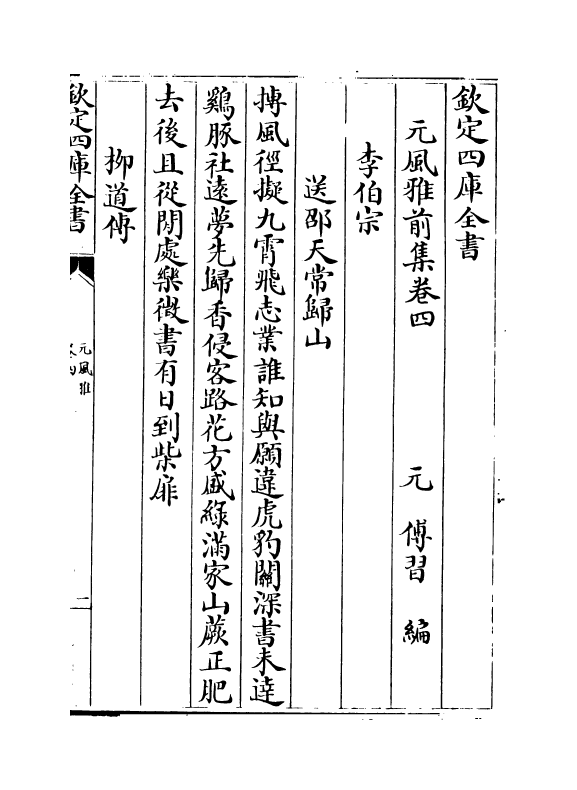 欽定四庫全書
元風雅前集卷四　元　傅習　編
李伯宗
送邵天常歸山
搏風徑擬九霄飛志業誰知與願違虎豹關深書未達
鷄豚社遠夢先歸香侵客路花方盛綠滿家山蕨正肥
去後且從閒處樂徴書有日到柴扉
栁道傳
欽定四庫全書
元風雅
卷四
二